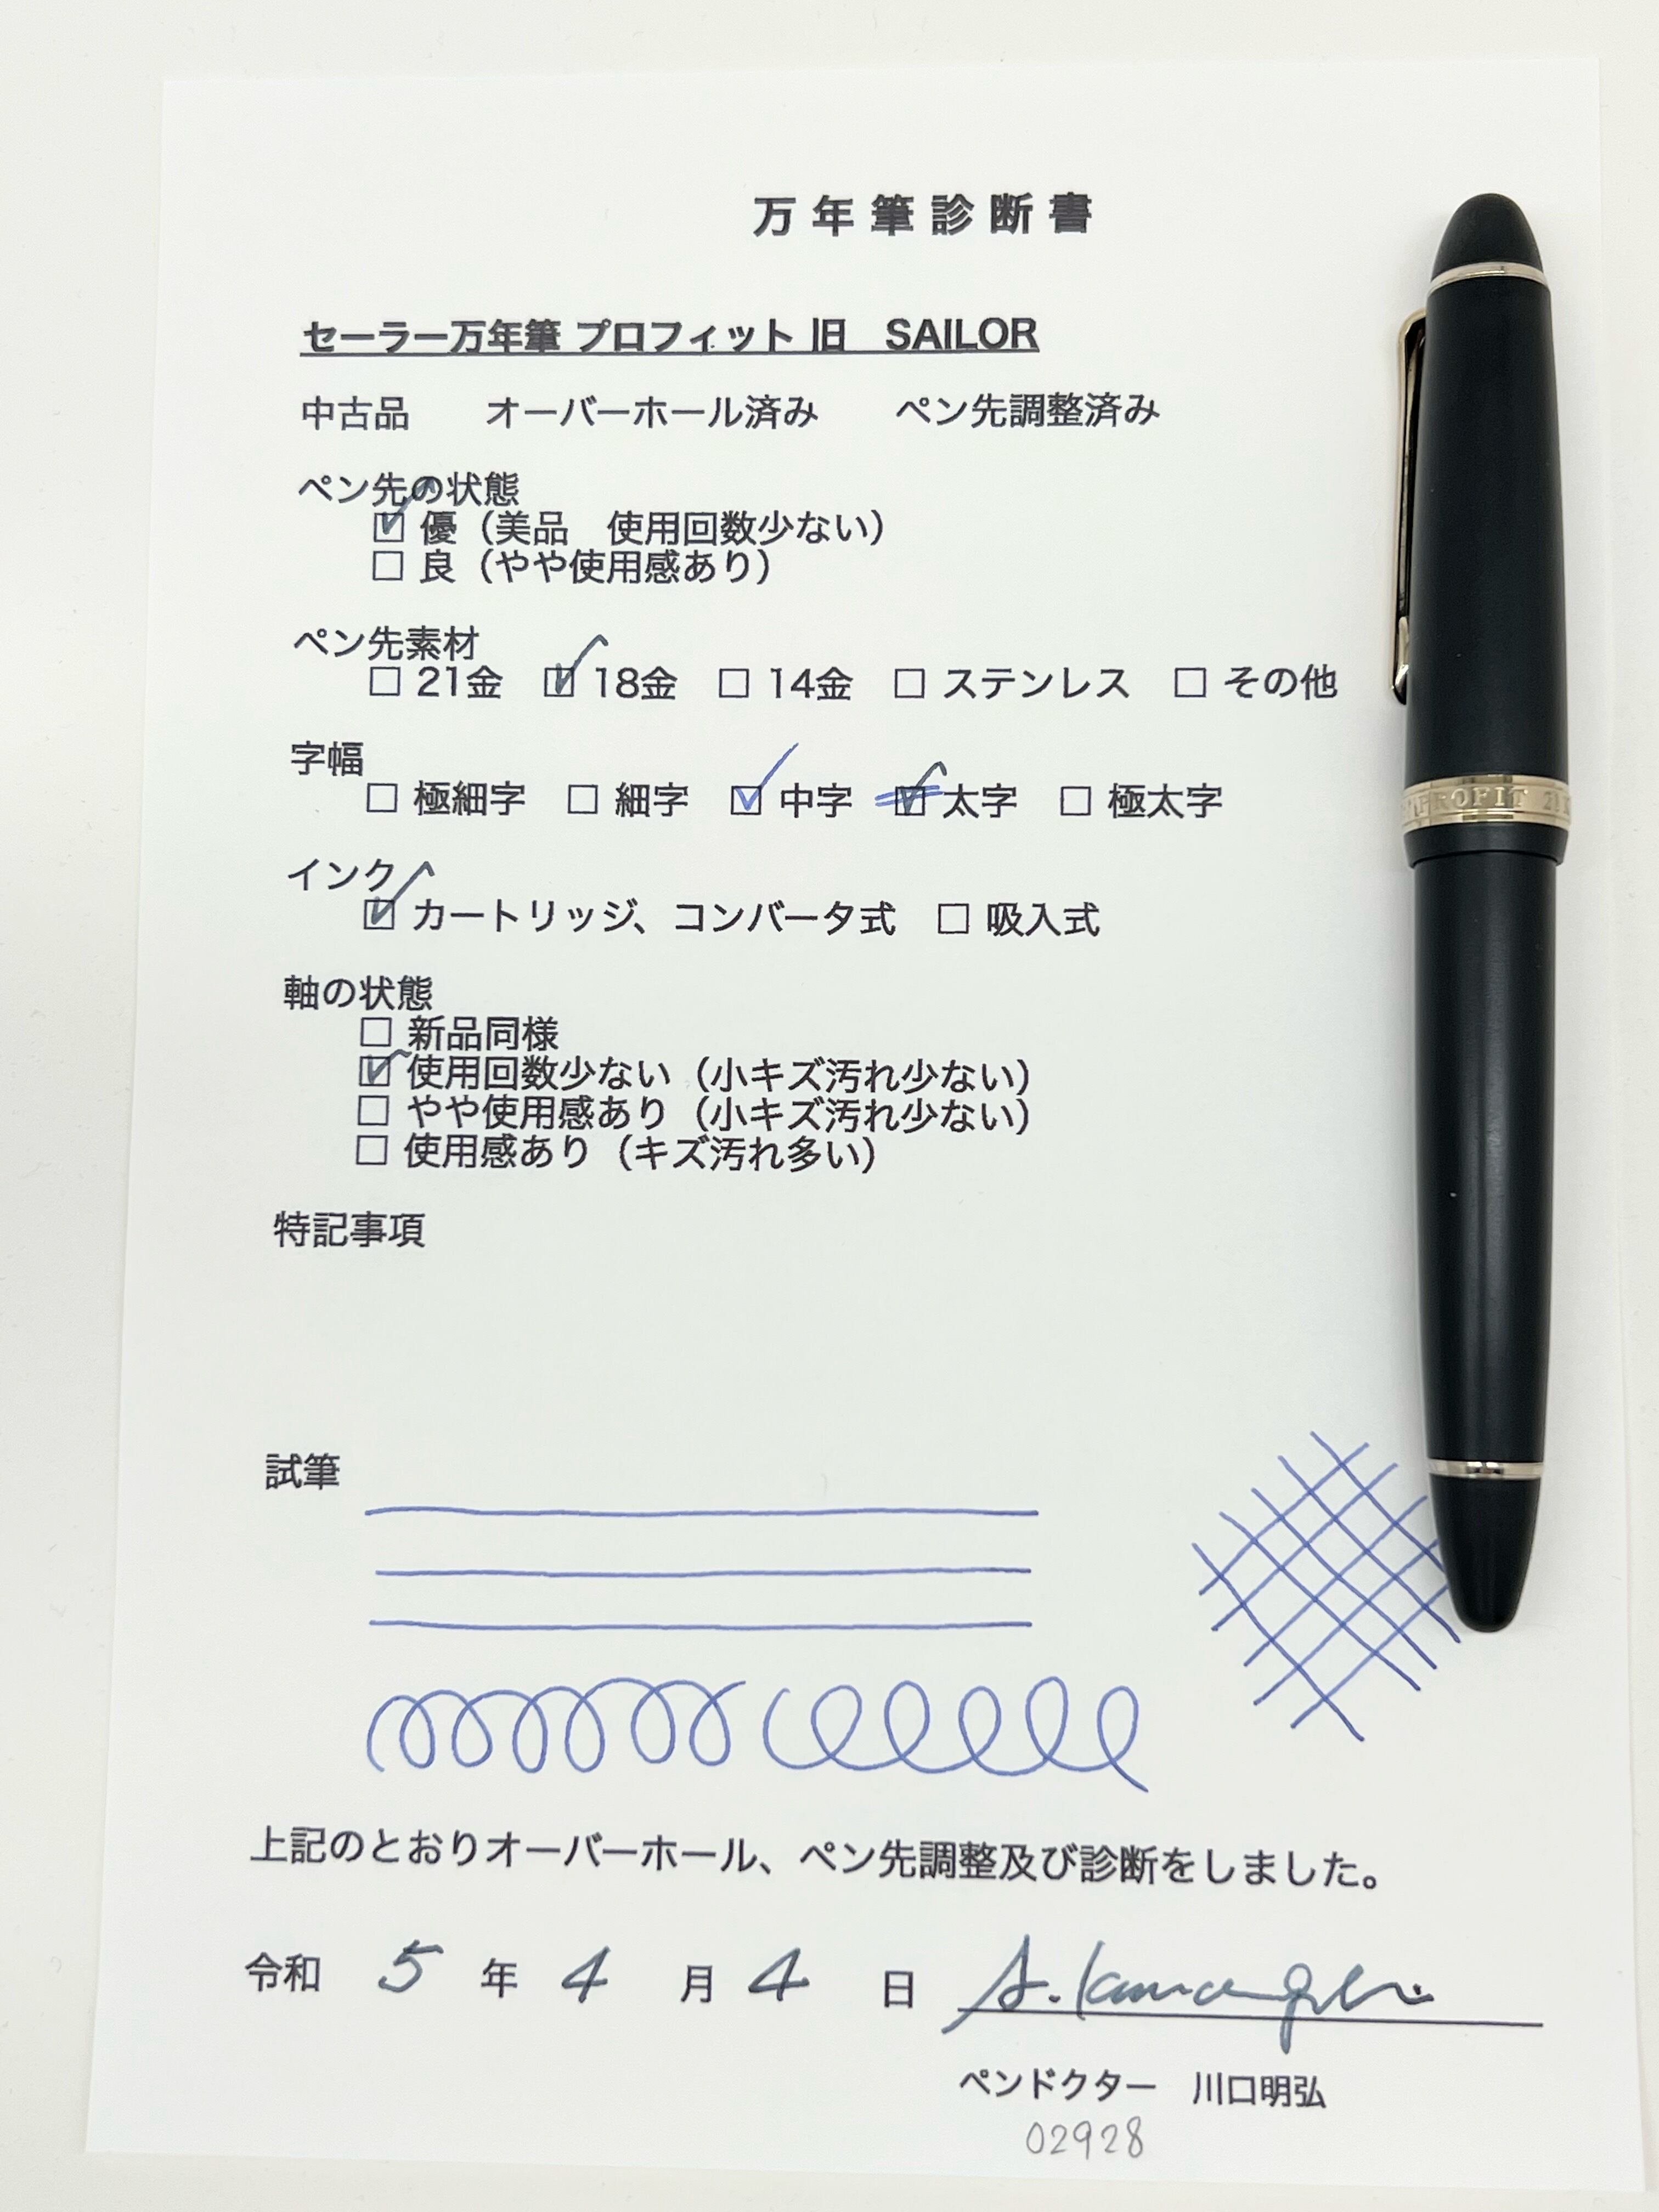 万年筆診断書
セーラー万年筆 プロフィット 旧　SAILOR
中古品　オーバーホール済み　ペン先調整済み
ペン先の状態
☑ 優（美品　使用回数少ない）
☐ 良（やや使用感あり）
ペン先素材
☐ 21金　☑ 18金　☐ 14金　☐ ステンレス　☐ その他
字幅
☐ 極細字　☐ 細字　☑ 中字　☑ 太字　☐ 極太字
インク
☑ カートリッジ、コンバータ式　☐ 吸入式
軸の状態
☐ 新品同様
☑ 使用回数少ない（小キズ汚れ少ない）
☐ やや使用感あり（小キズ汚れ少ない）
☐ 使用感あり（キズ汚れ多い）
特記事項
試筆
上記のとおりオーバーホール、ペン先調整及び診断をしました。
令和 5 年 4 月 4 日
ペンドクター　川口明弘
02928
PROFIT